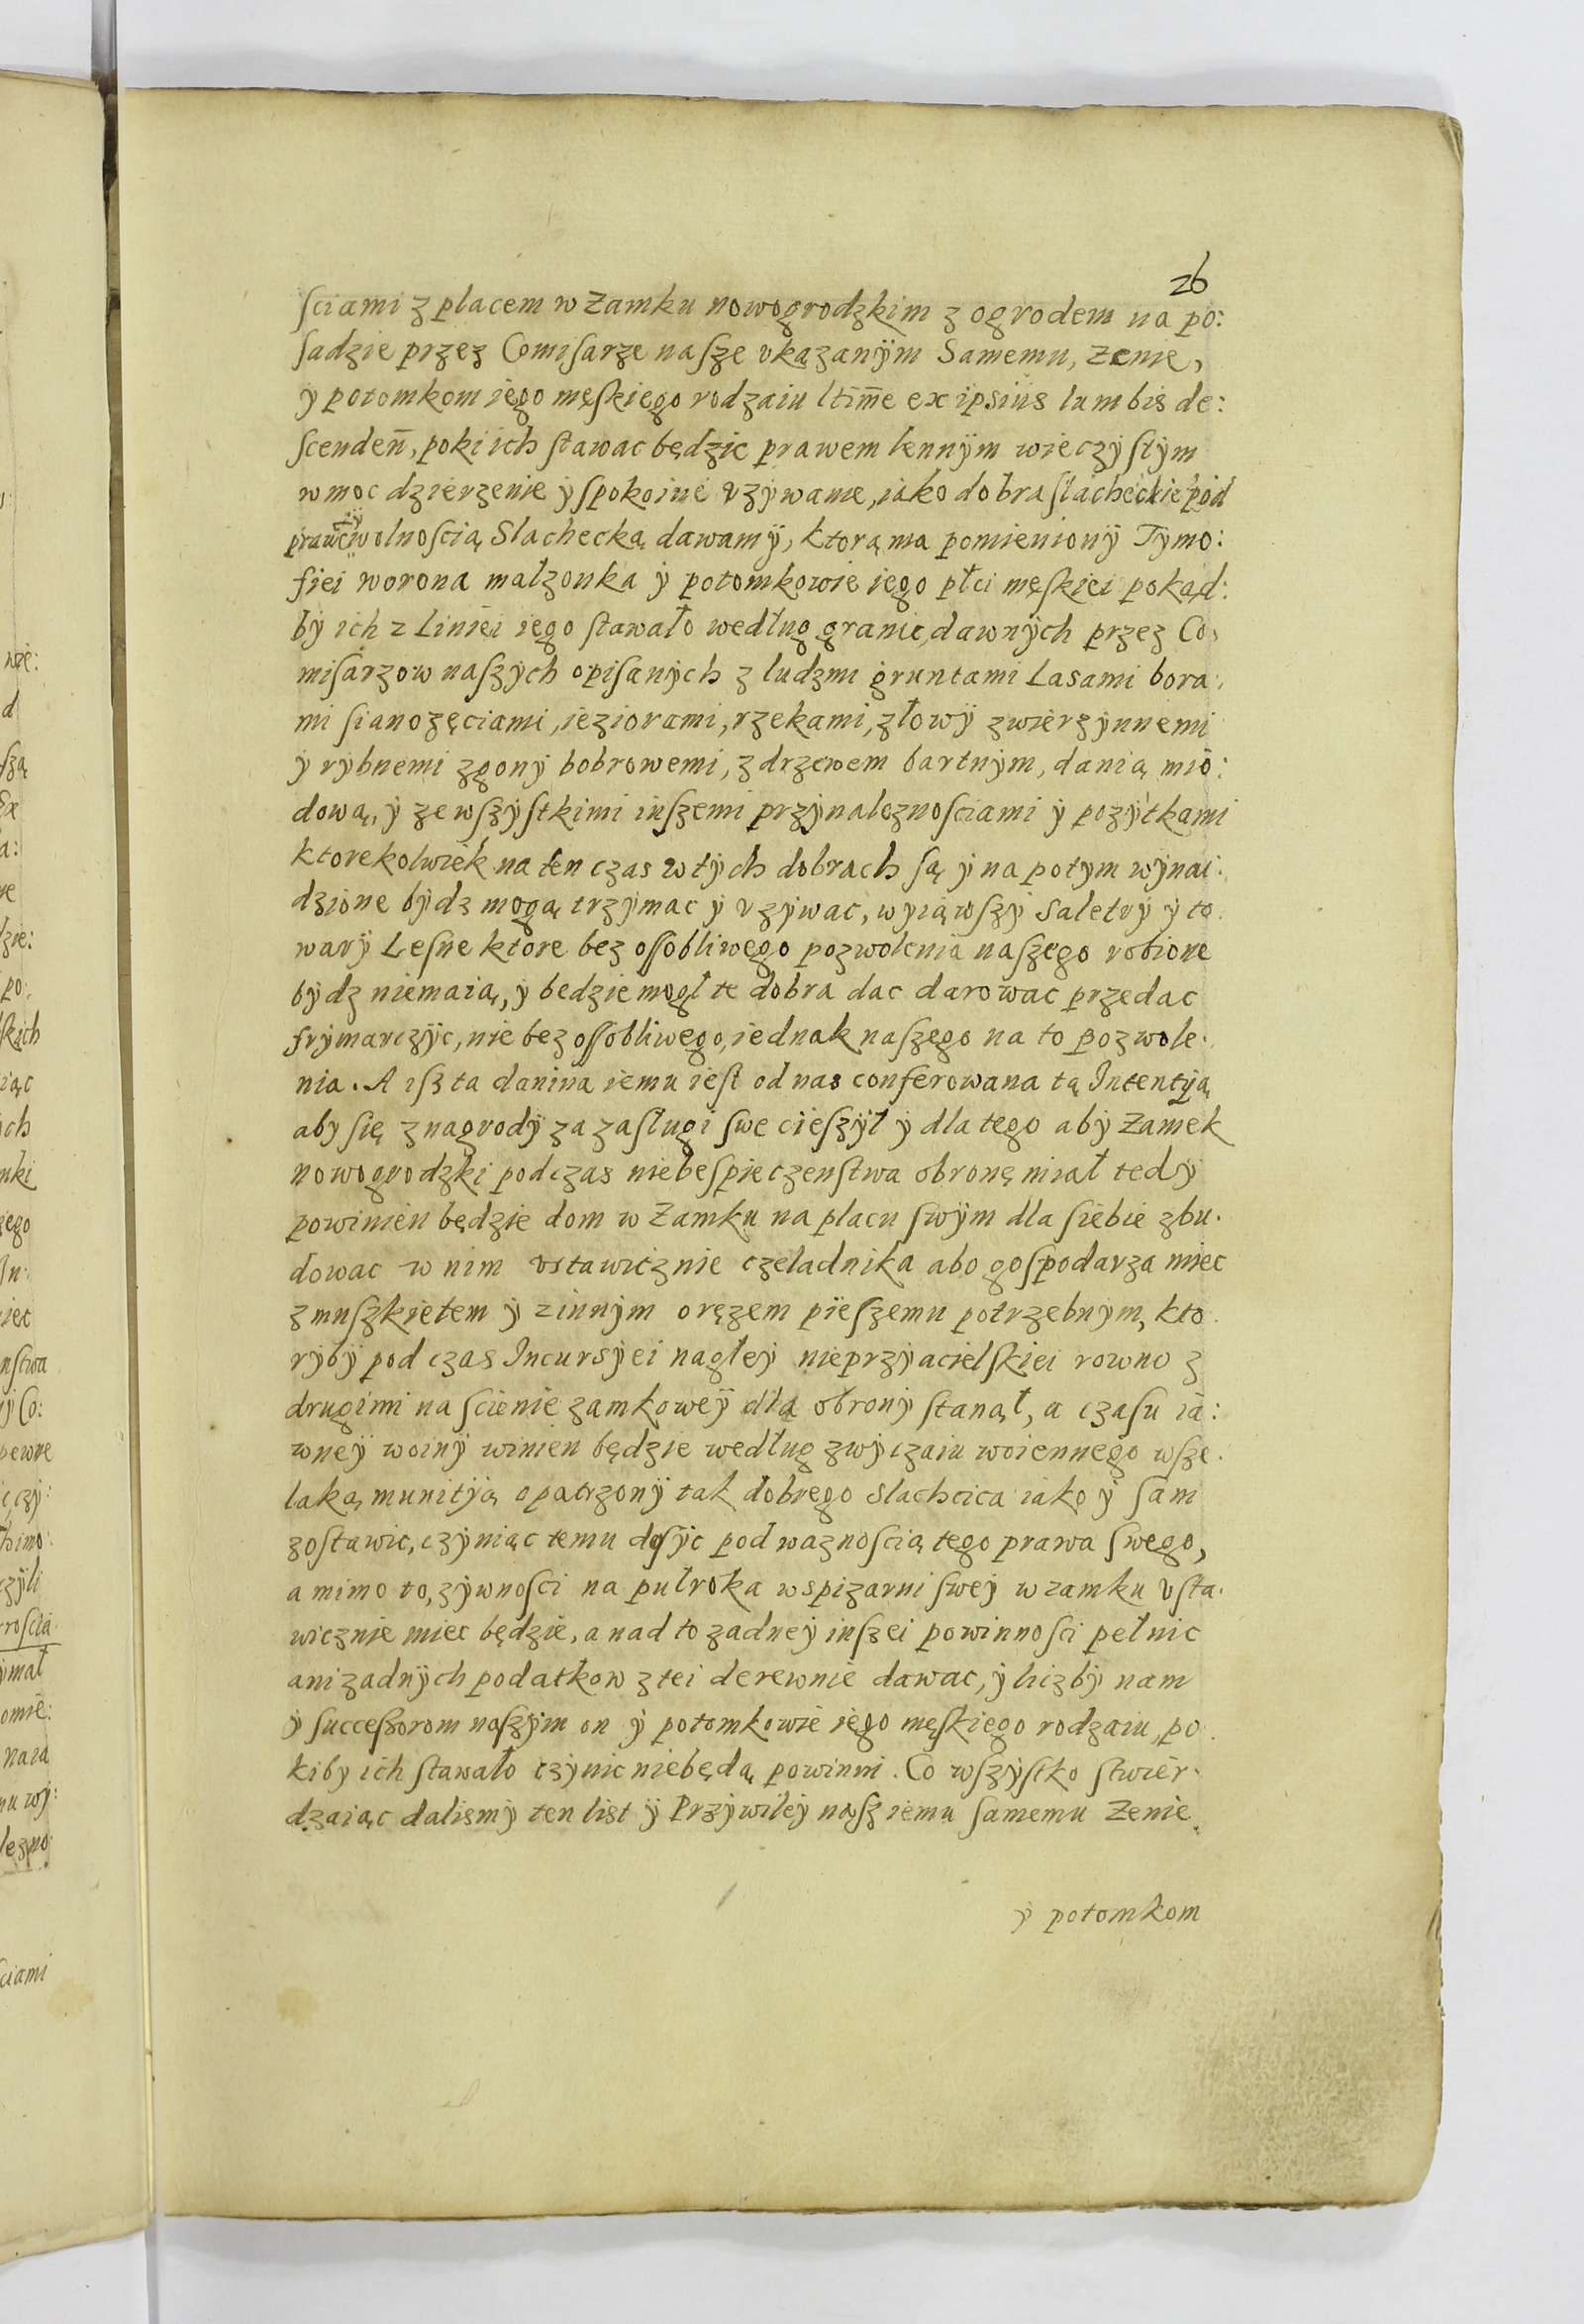 26
ſciami z placem w Zamku nowogrodzkim z ogrodem na po:
ſadzie przez Comiſarze naſze vkazanÿm Samemu, Zenie,
ÿ potomkom iego męſkiego rodzaiu ltim̄e ex ipsius lumbis de:
ſcendeñ, poki ich ſtawac będzie prawem lennÿm wieczÿſtÿm
w moc dzierzenie ÿ ſpokoine vzÿwanie, iako dobra ſlacheckie pod
prawē ÿ wolnoſcią Slachecką dawamÿ, ktorą ma pomienionÿ Tÿmo:
fiei worona małzonka ÿ potomkowie iego płci męſkiei pokąd:
bÿ ich z Liniei iego ſtawało według granic dawnÿch przez Co,
miſarzow naſzÿch opiſanÿch z ludzmi gruntami Lasami bora:
mi ſianozęciami, ieziorami, rzekami, złowÿ zwierzÿnnemi
ÿ rÿbnemi zgonÿ bobrowemi, z drzewem bartnÿm, danią mio:
dową, ÿ ze wſzÿſtkimi inſzemi przÿnaleznoſciami ÿ pozÿtkami
ktorekolwiek na ten czas w tÿch dobrach ſą ÿ na potÿm wÿnai:
dzione bÿdz mogą trzÿmac ÿ vzÿwac, wÿiąwſzÿ Saletrÿ ÿ to
warÿ Leſne ktore bez oſſobliwego pozwolenia naſzego robione
bÿdz niemaią, ÿ bedzie mogł te dobra dac darowac przedac
frÿmarczÿc, nie bez oſſobliwego, iednak naſzego na to pozwole.
nia. A iſz ta danina iemu ieſt od nas conferowana tą Intentÿą
abÿ ſię z nagrodÿ za zaſługi ſwe cieſzÿł ÿ dla tego abÿ Zamek
nowogrodzki podczas niebeſpieczenſtwa obronę miał tedÿ
powinien będzie dom w Zamku na placu ſwÿm dla ſiebie zbu.
dowac w nim vstawicznie czeladnika abo goſpodarza miec
z muſzkietem ÿ z innÿm oręzem pieſzemu potrzebnÿm, kto
rÿbÿ pod czas Incursÿei nagłeÿ nieprzÿacielſkiei rowno z
drugimi na ſcienie zamkoweÿ dla obronÿ ſtanął, a czaſu ia:
wneÿ woinÿ winien będzie według zwÿczaiu woiennego wſze.
laką munitÿą opatrzonÿ tak dobrego Slachcica iako ÿ ſam
zoſtawic, czÿniąc temu doſÿc pod waznoſcią tego prawa ſwego,
a mimo to, zÿwnoſci na pułroka w spizarni ſweÿ w zamku vſta.
wicznie miec będzie, a nad to zadneÿ inſzei powinnoſci pełnic
ani zadnÿch podatkow z tei derewnie dawac, ÿ liczbÿ nam
ÿ ſucceſsorom naſzÿm on ÿ potomkowie iego męſkiego rodzaiu, po
kibÿ ich ſtawało czÿnic niebędą powinni. Co wſzÿſtko ſtwier.
dzaiąc daliſmÿ ten list ÿ Przÿwileÿ naſz iemu ſamemu Zenie
ÿ potomkom